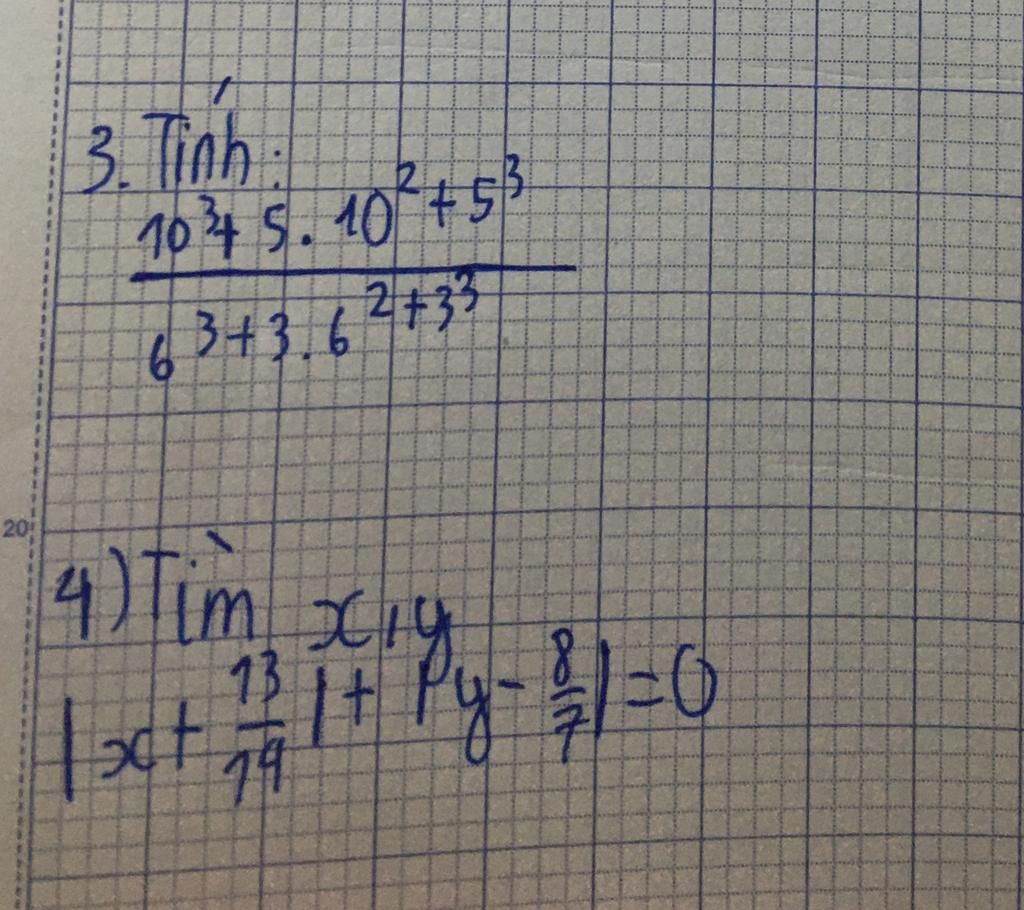 3. Tính:
10³ + 5 . 10² + 5³
6³ + 3 . 6² + 3³
20
4) Tìm x, y
|x + 13/14| + |y - 8/7| = 0